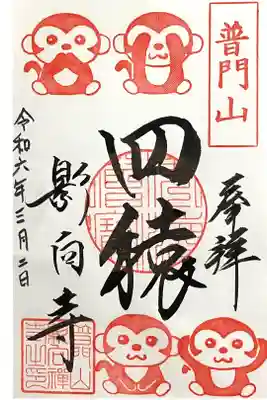 普門山
奉拝
四猿
影向寺
令和六年三月二日